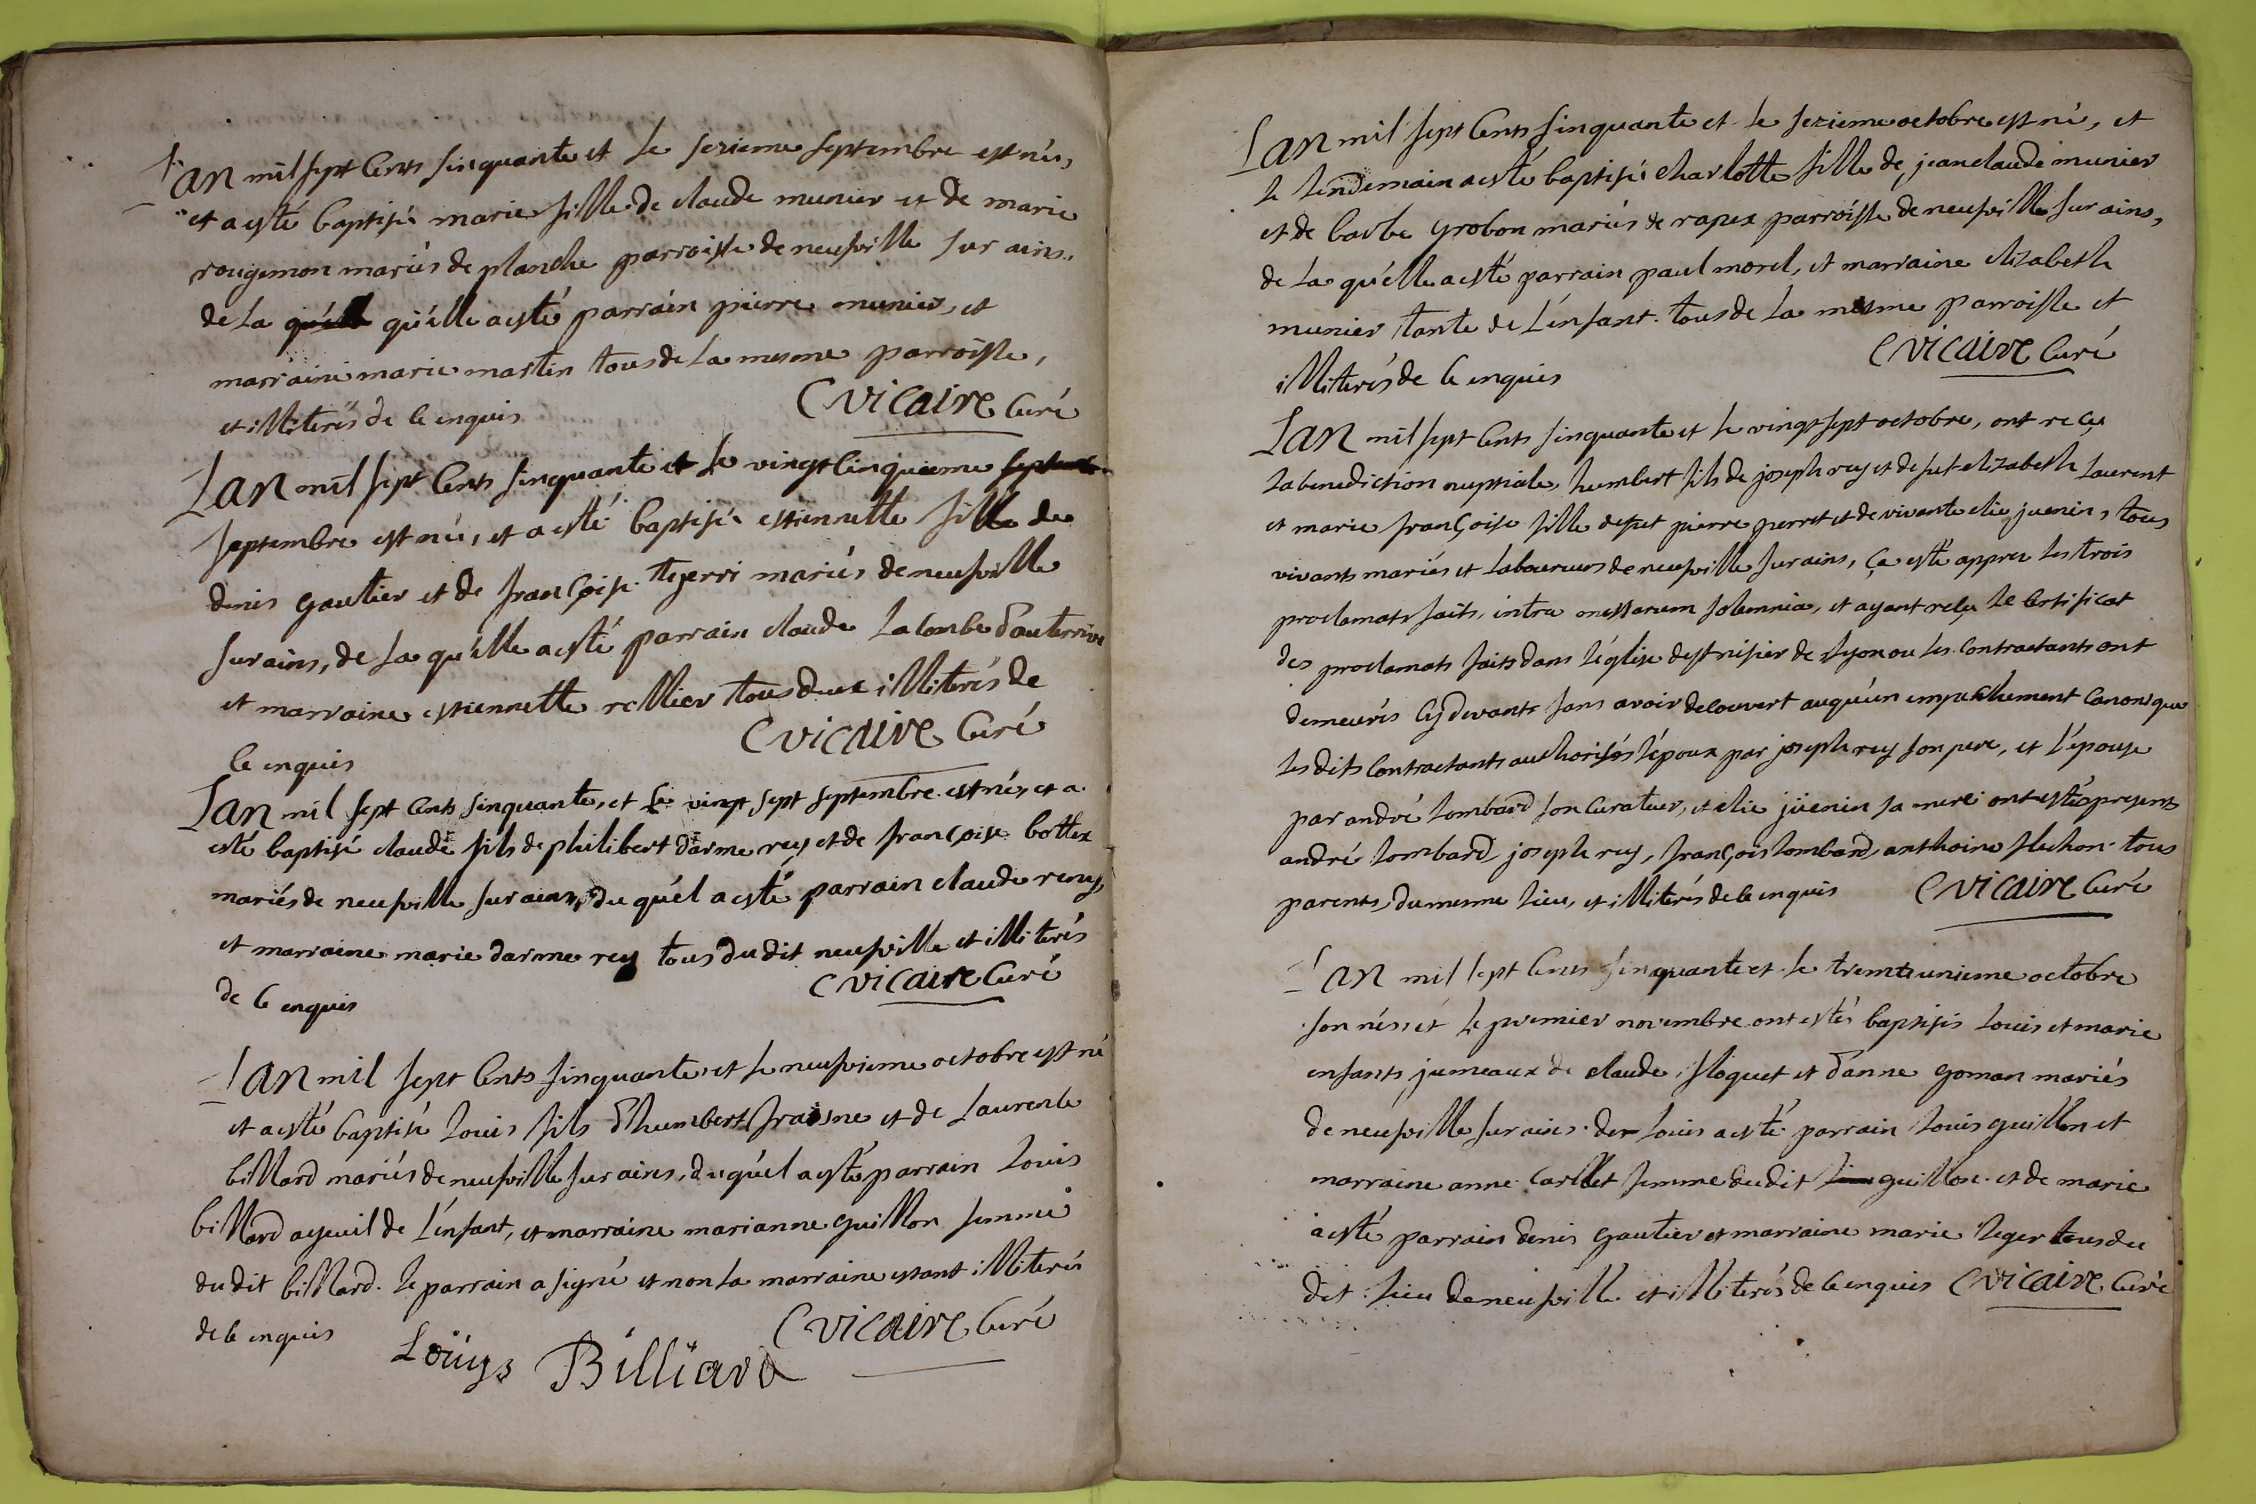 Lan mil sept Cents sinquante et le sezieme septembre est née,
et a esté baptisée marie fille de claude munier et de marie
rougemon mariés de planche parroisse de neufville sur ains.
de la qu'élle a esté parrain pierre munier, et
marraine marie martin tous de la mesme parroisse,
et illiterés de ce enquis
C vicaire Curé
Lan mil sept Cents sinquante et le vingt Cinquieme septembre
septembre est née, et a esté baptisée estiennette fille de
denis gautier et de françoise mariés de neufville
sur ains, de la qu'élle a esté parrain claude lacombe d'auterrive
et marraine estiennette rellier tous deux illiterés de
ce enquis
C vicaire Curé
Lan mil sept Cents sinquante, et le vingt sept septembre est né, et a
esté baptisé claude fils de philibert darme rey et de françoise bottex
mariés de neufville sur ains, du qu'él a esté parrain claude remy,
et marraine marie darme rey tous du dit neufville et illiterés
de ce enquis
C vicaire Curé
Lan mil sept Cents sinquante, et le neufvieme octobre est né
et a esté baptisé louis fils d'humbert fraisne et de laurence
billard mariés de neufville sur ains, du qu'él a esté parrain louis
billard ayeuil de l'énfant, et marraine marianne guillon femme
du dit billard. le parrain a signé et non la marraine estant illiterée
de ce enquis
C vicaire Curé
Loüys Billiard
Lan mil sept Cents sinquante et le sezieme octobre est née, et
le lendemain a esté baptisée charlotte fille de jean claude munier
et de barbe grobon mariés de rapex parroisse de neufville sur ains,
de la qu'élle a esté parrain paul morel, et marraine elizabeth
munier tante de l'énfant tous de la mesme parroisse et
illiterés de ce enquis
C vicaire Curé
Lan mil sept Cents sinquante et le vingt sept octobre, ont reçu
la benediction nuptiale, humbert fils de joseph rey et de fut elizabeth laurent
et marie françoise fille defut pierre perret et de vivante elie juenin, tous
vivants mariés et laboureurs de neufville sur ains, ça esté appres les trois
proclamats faits, intra missarum solemnia, et ayant reçu le Certificat
des proclamats faits dans l'église de st nisier de lyon ou les Contractants ont
demeurés Cy devants sans avoir decouvert auqu'un empechement Canonique
les dits Contractants authorisés l'époux par joseph rey son pere, et l'épouse
par andré lombard son Curateur, et elie jüenin sa mere ont estés presents
andré lombard, joseph rey, françois lombard, anthoine tous
parents, du mesme lieu, et illiterés de ce enquis
C vicaire Curé
Lan mil sept Cents sinquante et le trente unieme octobre
son nés, et le premier novembre ont estés baptisés louis et marie
enfants jumeaux de claude floquet et d'anne goman mariés
de neufville sur ains. der louis a esté parrain louis guillon et
marraine anne carllet femme du dit guillon et de marie
a esté parrain denis gautier et marraine marie leger tous du
dit lieu de neufville et illiterés de ce enquis C vicaire Curé